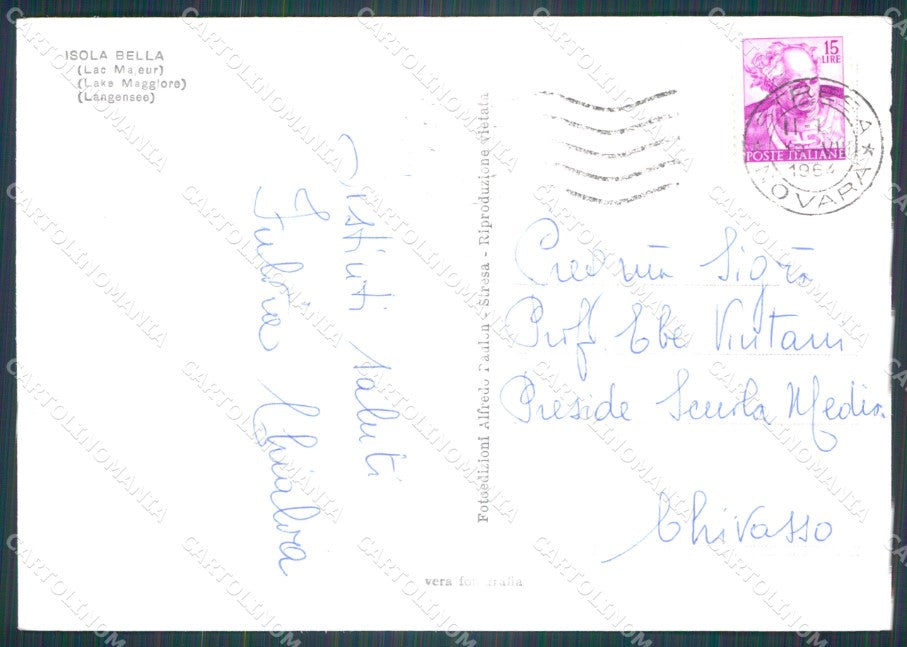 ISOLA BELLA
(Lac Majeur)
(Lake Maggiore)
(Langensee)
Distinti saluti
Fulvia Chialva
Fotoedizioni Alfredo Paulon - Stresa - Riproduzione vietata
vera foto Italia
15
LIRE
POSTE ITALIANE
STRESA
1964
* NOVARA *
Prof. Ebe
Preside Scuola Media
Chivasso
CARTOLINOMANIA